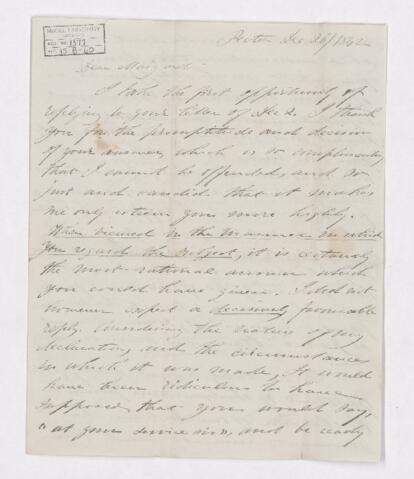 McGILL UNIVERSITY
ACC. NO. 1377
REF.
Pictou Dec 26/1842
Dear Margaret
I take the first opportunity of
replying to your letter of Dec 2. I thank
you for the promptitude and decision
of your answer, which is so complimentary
that I cannot be offended, and so
just and candid that it makes
me only esteem you more highly.
When viewed in the manner in which
you regard the subject, it is certainly
the most rational answer which
you could have given. I did not
however expect a decisively favourable
reply. Considering the nature of my
declaration, and the circumstances
in which it was made, it would
have been ridiculous to have
supposed that you would say,
"at your service sir", and be ready